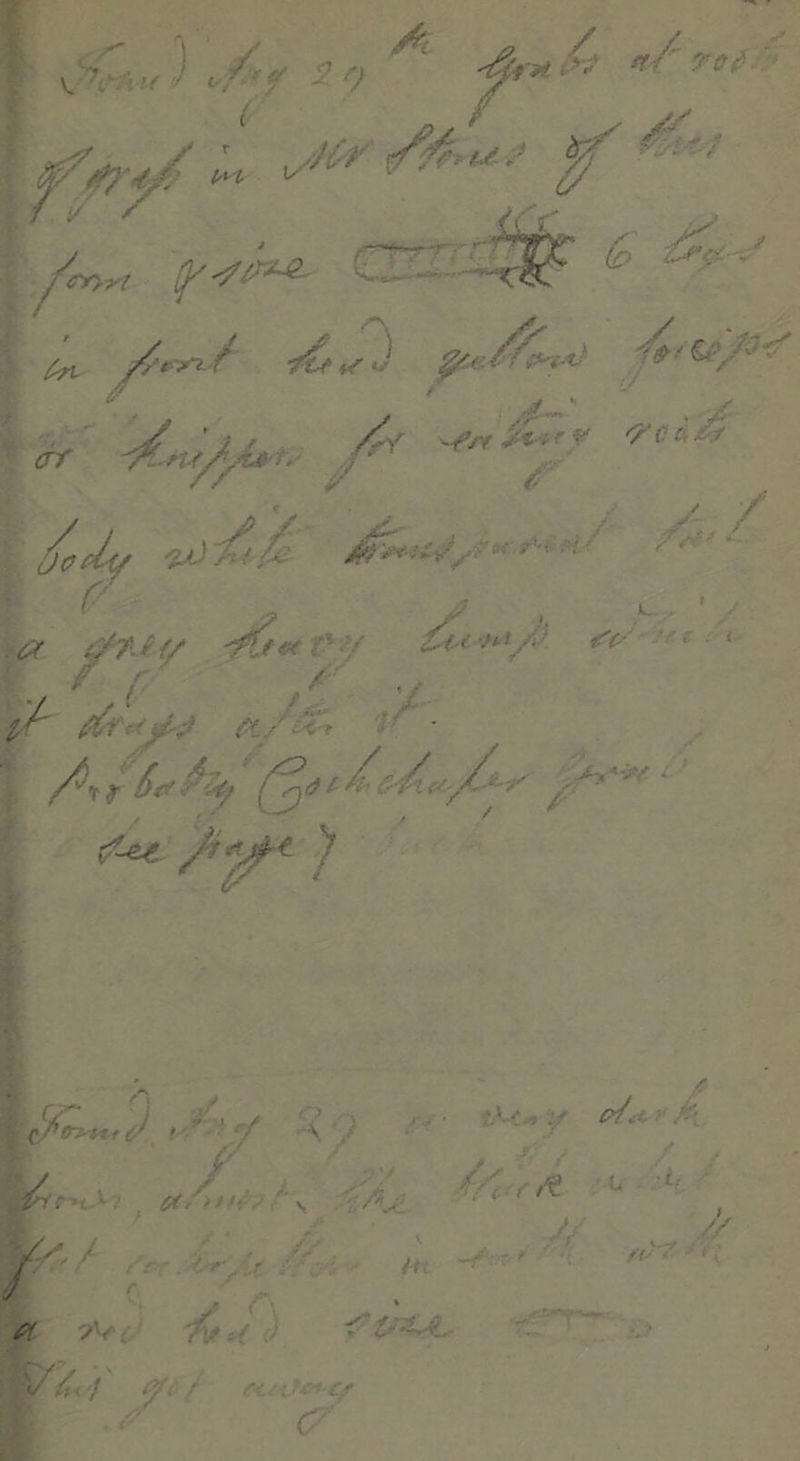 Found July 29th Grubs at root
of grass in Mr Stones of this
form & size 6 legs
in front head yellow forceps
or knippers for cutting roots
body white transparent but
a grey heavy lump which
it drags after it.
Probably Cockchafer grub
see page }
Found July 29 a very dark
brown, almost black
flat caterpillar in earth with
a red head size
This got away